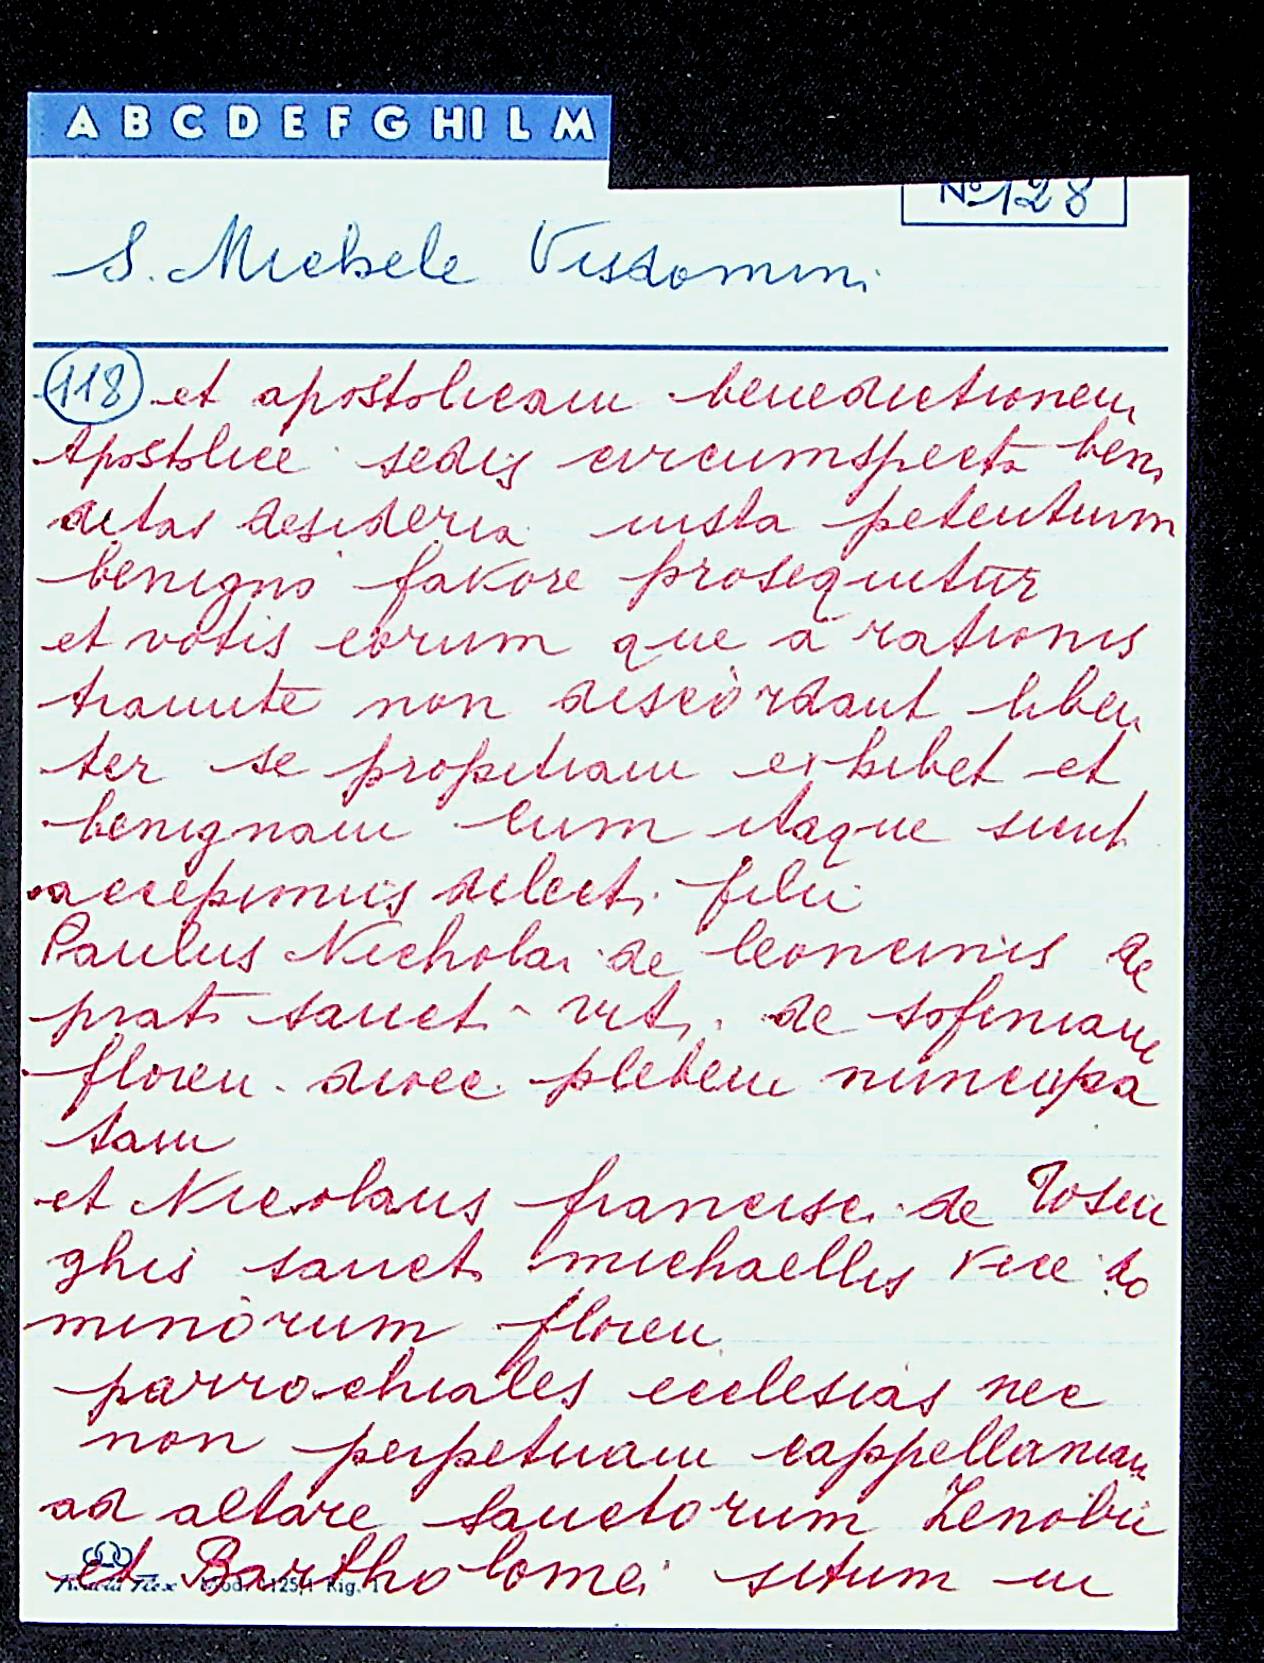 A B C D E F G HI L M
N° 128
S. Michele Visdomini
118 et apostolicam benedictionem
Apostolice sedis circumspecta beni
ditas desideria iusta petentium
benigno favore prosequitur
et votis eorum que a rationis
tramite non discordant liben
ter se propitiam exhibet et
benignam cum itaque sicut
accepimus dilecti filii
Paulus Nicholai de leoncinis de
prato sancti vit. de sofiniane
floren. dioec. plebem nuncupa
tam
et Nicolaus francisci de Tosin
ghis sancti michaellis vice do
minorum floren.
parrochiales ecclesias nec
non perpetuam cappellaniam
ad altare sanctorum Zenobii
et Bartholomei situm in